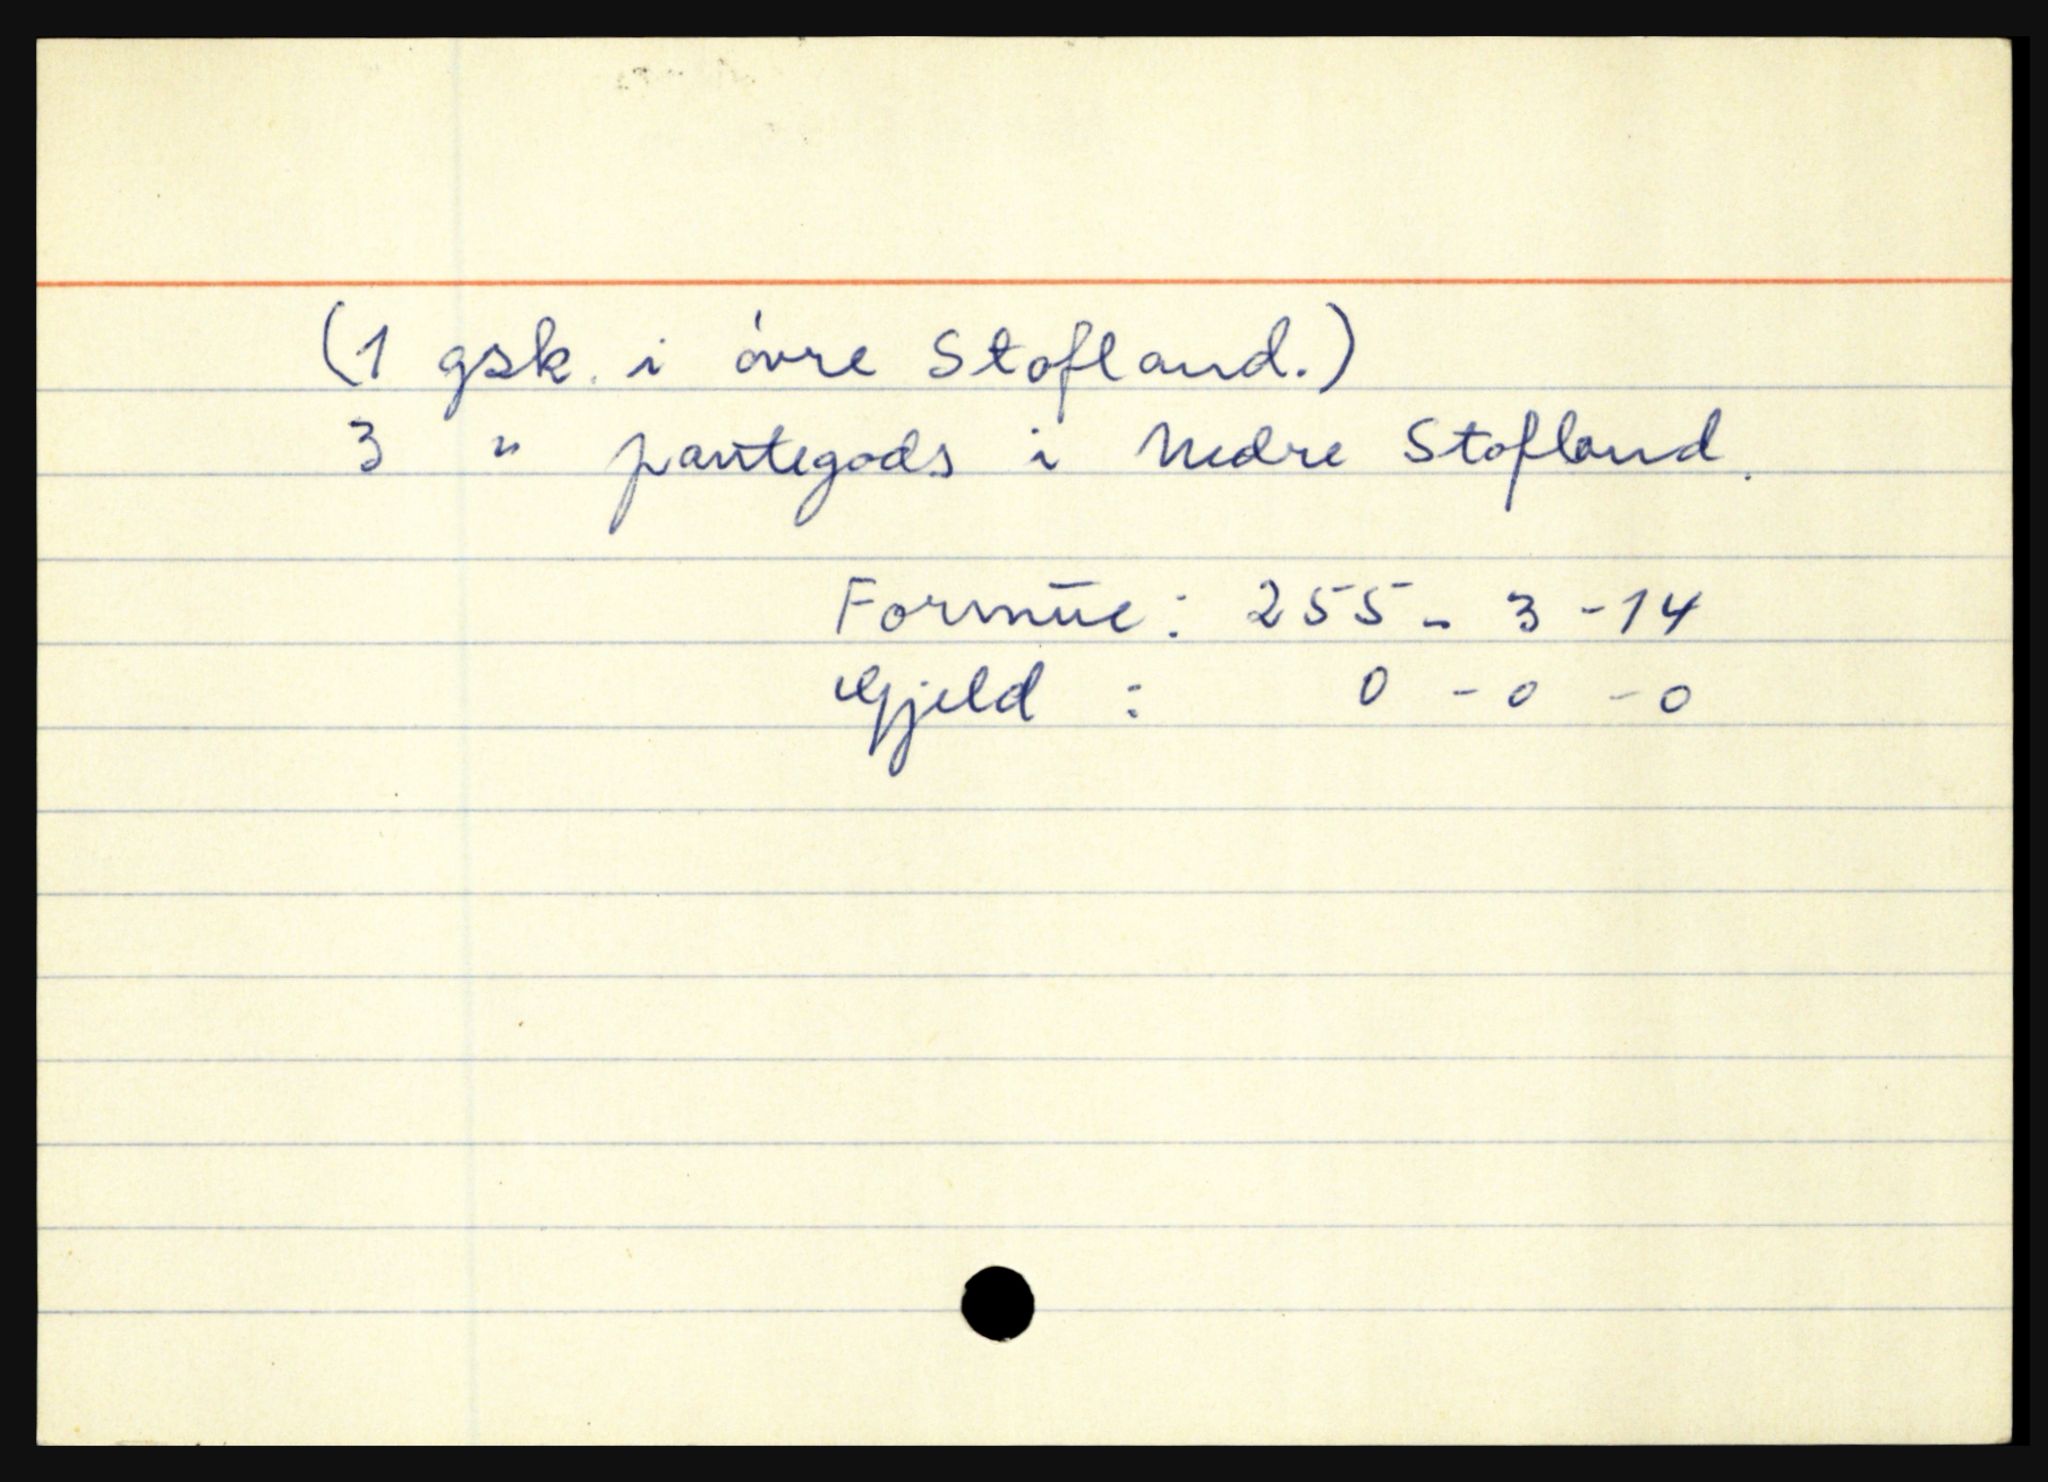 (1 gsk. i övre Stofland.)
3 " pantegods i Nedre Stofland.
Formue: 255 - 3 - 14
Gjeld : 0 - 0 - 0